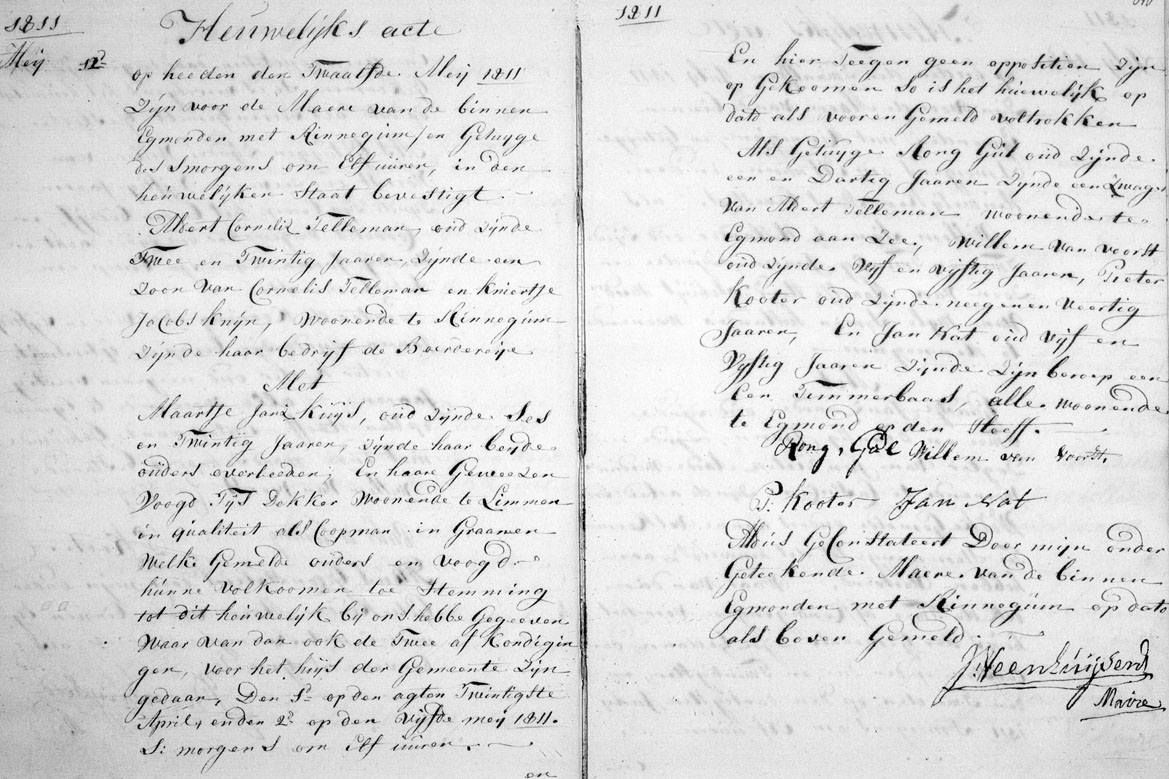 1811
Heuwelijks acte
Meij 12d
op heeden den Twaalfde Meij 1811
Zijn voor de Maere van de binnen
Egmonden met Rinnegum en Getuijge
des smorgens om Elf uuren, in den
heuwelijken Staat bevestigt
Albert Cornelis Telleman, oud Zijnde
Twee en Twintig Jaaren, Zijnde een
Zoon van Cornelis Telleman en Kniertje
Jacobs Knijn, Woonende te Rinnegum
Zijnde haar bedrijf de Boerdereije
Met
Maartje Jans Kuijs, oud Zijnde Ses
en Twintig Jaaren, Zijnde haar beijde
ouders overleeden, En haare Geweezen
Voogd Tijs Dekker Woonende te Limmen
in qualiteit als Coopman in Graanen
Welke Gemelde ouders en voogd
hunne volkoomen toe Stemming
tot dit heuwelijk bij ons hebbe Gegeeven
Waar van dan ook de Twee af Kondigin
gen, voor het huijs der Gemeente Zijn
gedaan, Den 1e op den agten Twintigste
April, en den 2e op den Vijfde meij 1811.
S: morgens om Elf uuren
en
1811
En hier Teegen geen oppositien Zijn
op Gekoomen So is het huewelijk op
dato als vooren Gemeld voltrokken
Als Getuijge Rong Gul oud Zijnde
een en Dartig Jaaren Zijnde een Zwag
van Albert Telleman woonende te
Egmond aan Zee, Willem van Voorst
oud Zijnde Vijf en vijftig Jaaren, Pieter
Kooter oud Zijnde neegen en Veertig
Jaaren, En Jan Kat oud vijf en
Vijftig Jaaren Zijnde Zijn beroep een
een Timmerbaas, alle woonende
te Egmond op den Hoeff.
Rong, Gul Willem van Voorst
P: Kooter Jan Kat
Aldus GeConstateert Door mijn onder
Geteekende Maere van de binnen
Egmonden met Rinnegum op dato
als boven Gemeld
J. Veenhuijsen
Maire